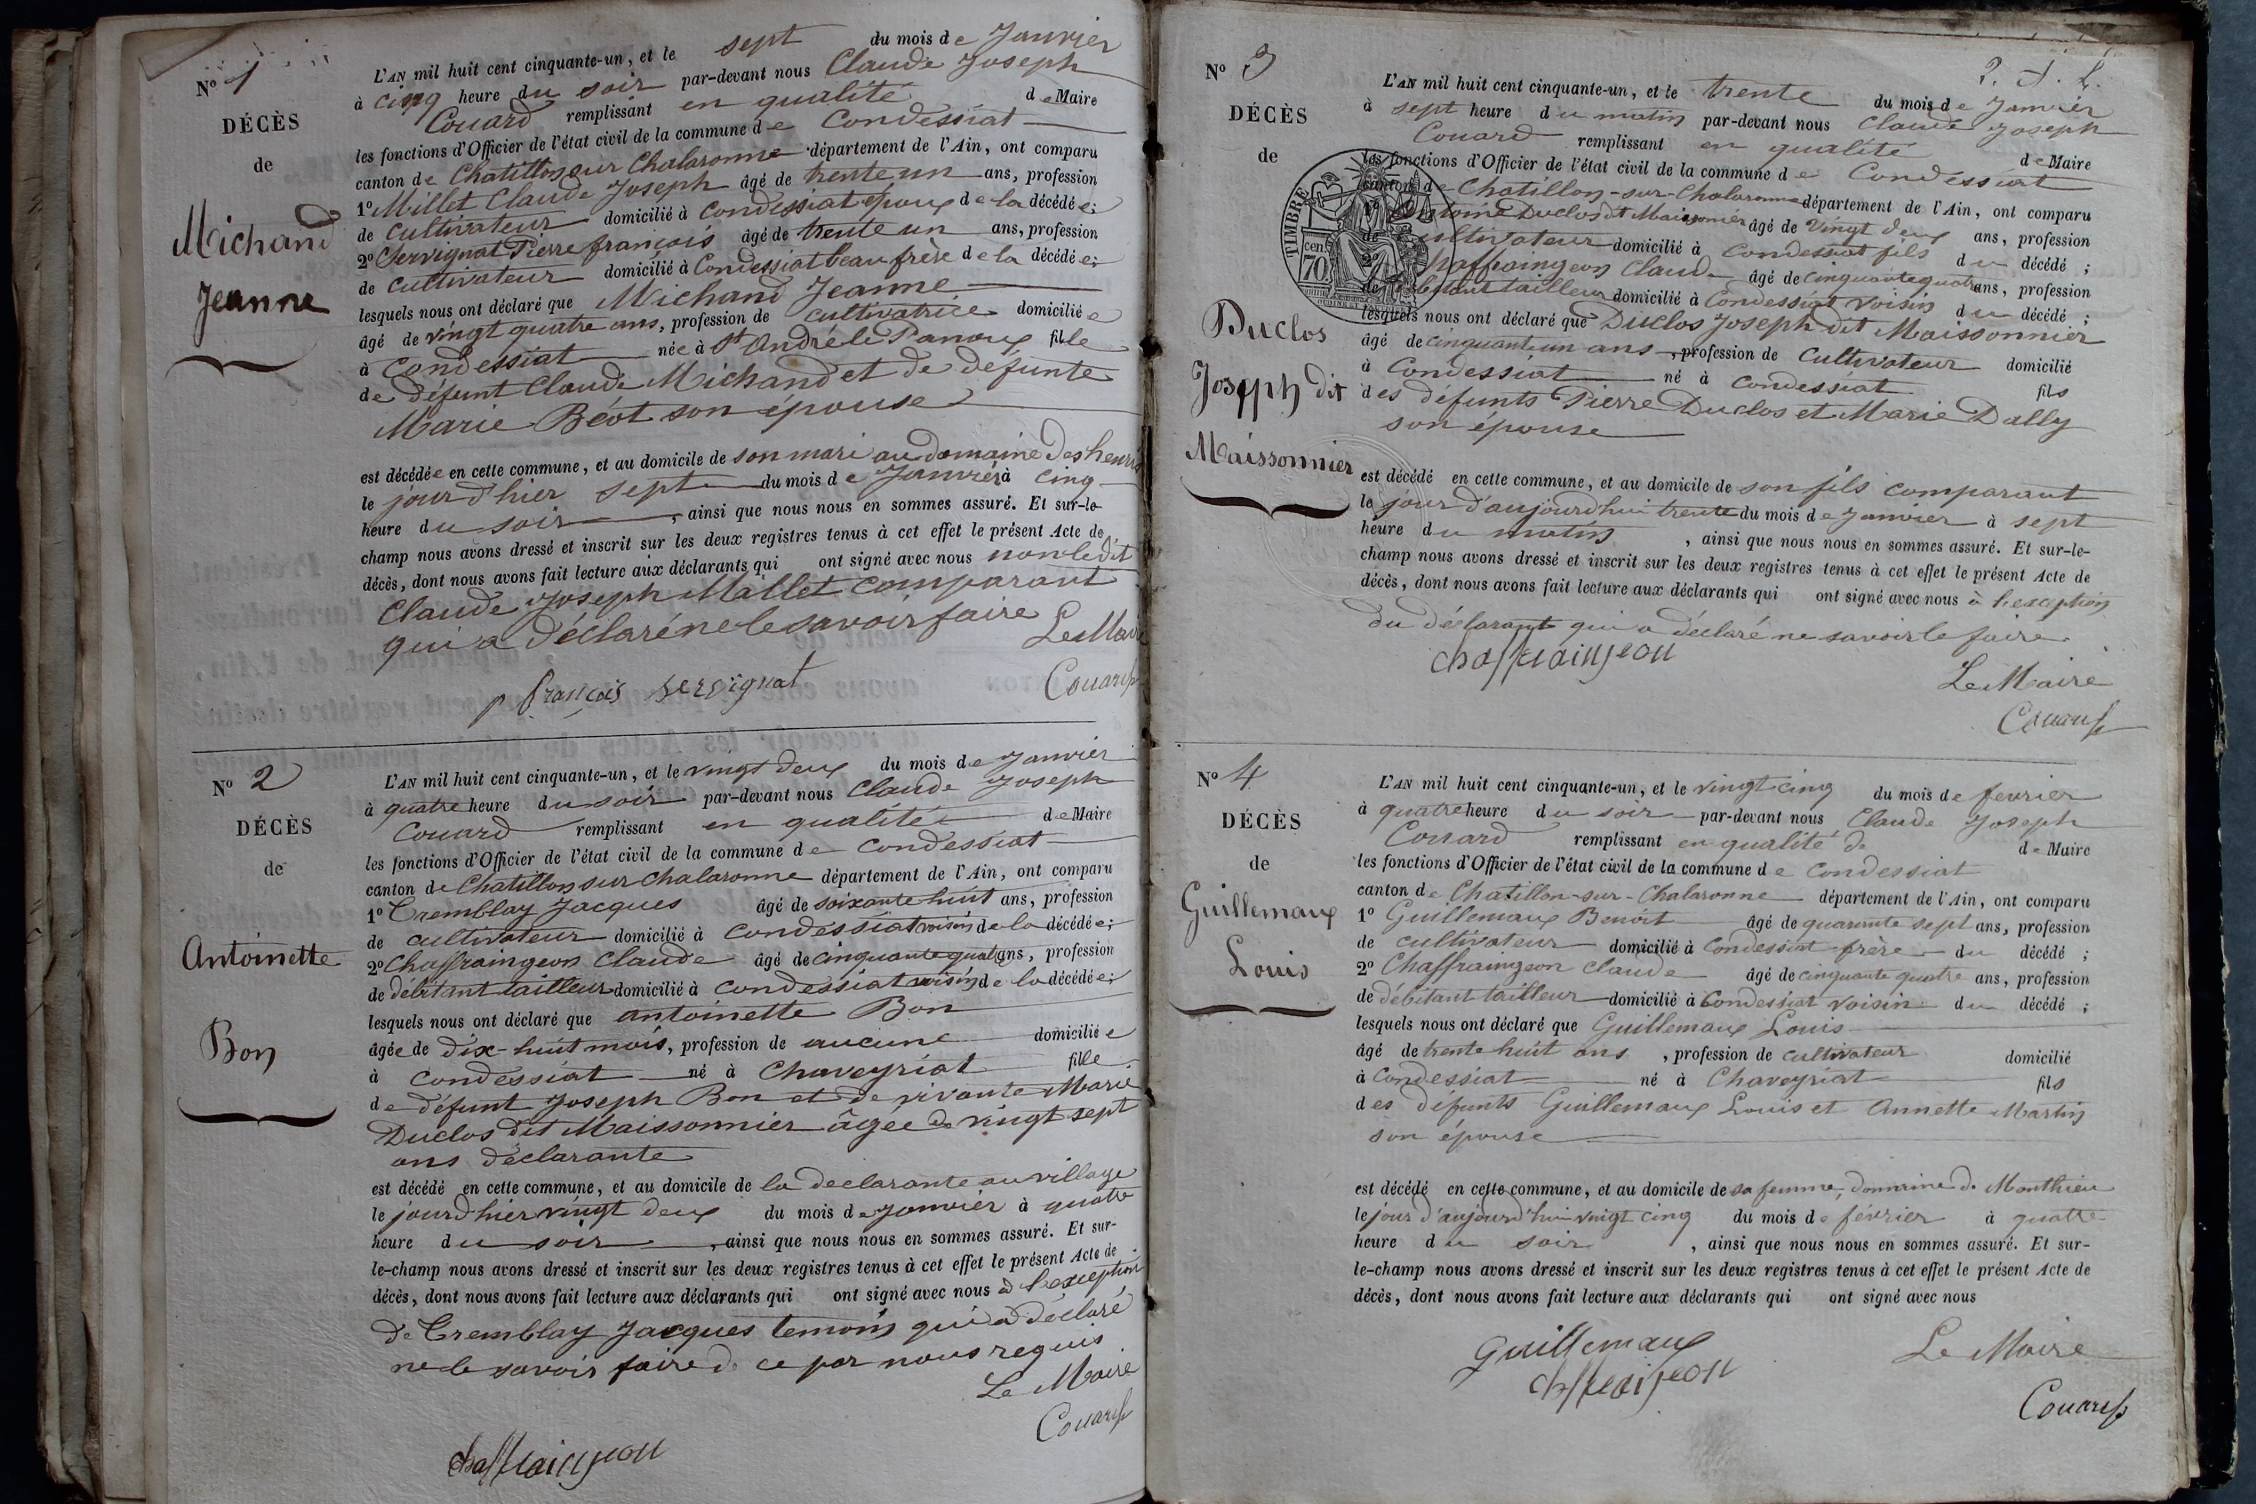 N° 1
DÉCÈS
de
Michand
Jeanne
L'AN mil huit cent cinquante-un, et le sept du mois de Janvier
à cinq heure du soir par-devant nous Claude Joseph
Couard remplissant en qualité de Maire
les fonctions d'Officier de l'état civil de la commune de Condessiat
canton de Chatillon sur Chalaronne département de l'Ain, ont comparu
1° Millet Claude Joseph âgé de trente un ans, profession
de cultivateur domicilié à Condessiat époux de la décédée;
2° Servignat Pierre françois âgé de trente un ans, profession
de cultivateur domicilié à Condessiat beau frère de la décédée;
lesquels nous ont déclaré que Michand Jeanne
âgé de vingt quatre ans, profession de cultivatrice domiciliée
à Condessiat née à St André le Panoux fille
de défunt Claude Michand et de défunte
Marie Béot son épouse
est décédée en cette commune, et au domicile de son mari au domaine des
le jour d'hier sept du mois de Janvier à cinq
heure du soir, ainsi que nous nous en sommes assuré. Et sur-le-
champ nous avons dressé et inscrit sur les deux registres tenus à cet effet le présent Acte de
décès, dont nous avons fait lecture aux déclarants qui ont signé avec nous non ledit
Claude Joseph Mallet comparant
qui a déclaré ne le savoir faire
Le Maire
p françois servignat
Couard
N° 2
DÉCÈS
de
Antoinette
Bon
L'AN mil huit cent cinquante-un, et le vingt deux du mois de Janvier
à quatre heure du soir par-devant nous Claude Joseph
Couard remplissant en qualité de Maire
les fonctions d'Officier de l'état civil de la commune de Condessiat
canton de Chatillon sur Chalaronne département de l'Ain, ont comparu
1° Tremblay Jacques âgé de soixante huit ans, profession
de cultivateur domicilié à Condessiat voisin de la décédée;
2° Chaffraingeon Claude âgé de cinquante quatre ans, profession
de débitant tailleur domicilié à Condessiat voisin de la décédée;
lesquels nous ont déclaré que antoinette Bon
âgée de dix-huit mois, profession de aucune domiciliée
à Condessiat né à Chaveyriat fille
de défunt Joseph Bon et de vivante Marie
Duclos dit Maissonnier âgée de vingt sept
ans déclarante
est décédé en cette commune, et au domicile de la declarante au village
le jour d'hier vingt deux du mois de Janvier à quatre
heure du soir, ainsi que nous nous en sommes assuré. Et sur-
le-champ nous avons dressé et inscrit sur les deux registres tenus à cet effet le présent Acte de
décès, dont nous avons fait lecture aux déclarants qui ont signé avec nous à l'exception
de Tremblay Jacques temoin qui a déclaré
ne le savoir faire de ce par nous requis
Le Maire
Couard
chaffraingeon
N° 3
DÉCÈS
de
Duclos
Joseph dit
Maissonnier
TIMBRE
70 cen
L'AN mil huit cent cinquante-un, et le trente du mois de Janvier
à sept heure du matin par-devant nous Claude Joseph
Couard remplissant en qualité de Maire
les fonctions d'Officier de l'état civil de la commune de Condessiat
canton de Chatillon-sur-Chalaronne département de l'Ain, ont comparu
1° Antoine Duclos dit Maissonnier âgé de vingt deux ans, profession
de cultivateur domicilié à Condessiat fils du décédé;
2° Chaffraingeon Claude âgé de cinquante quatre ans, profession
de débitant tailleur domicilié à Condessiat voisin du décédé;
lesquels nous ont déclaré que Duclos Joseph dit Maissonnier
âgé de cinquante un ans, profession de cultivateur domicilié
à Condessiat né à Condessiat fils
des défunts Pierre Duclos et Marie Dally
son épouse
est décédé en cette commune, et au domicile de son fils comparant
le jour d'aujourdhui trente du mois de Janvier à sept
heure du matin, ainsi que nous nous en sommes assuré. Et sur-le-
champ nous avons dressé et inscrit sur les deux registres tenus à cet effet le présent Acte de
décès, dont nous avons fait lecture aux déclarants qui ont signé avec nous à l'exception
du déclarant qui a déclaré ne savoir le faire.
chaffraingeon
Le Maire
Couard
N° 4
DÉCÈS
de
Guillemaux
Louis
L'AN mil huit cent cinquante-un, et le vingt cinq du mois de fevrier
à quatre heure du soir par-devant nous Claude Joseph
Couard remplissant en qualité de de Maire
les fonctions d'Officier de l'état civil de la commune de Condessiat
canton de Chatillon-sur-Chalaronne département de l'Ain, ont comparu
1° Guillemaux Benoit âgé de quarante sept ans, profession
de cultivateur domicilié à Condessiat frère du décédé;
2° Chaffraingeon claude âgé de cinquante quatre ans, profession
de débitant tailleur domicilié à Condessiat voisin du décédé;
lesquels nous ont déclaré que Guillemaux Louis
âgé de trente huit ans, profession de cultivateur domicilié
à Condessiat né à Chaveyriat fils
des défunts Guillemaux Louis et Annette Martin
son épouse
est décédé en cette commune, et au domicile de sa femme, domaine de Monthieu
le jour d'aujourd'hui vingt cinq du mois de février à quatre
heure du soir, ainsi que nous nous en sommes assuré. Et sur-
le-champ nous avons dressé et inscrit sur les deux registres tenus à cet effet le présent Acte de
décès, dont nous avons fait lecture aux déclarants qui ont signé avec nous
Guillemaux
chaffraingeon
Le Maire
Couard